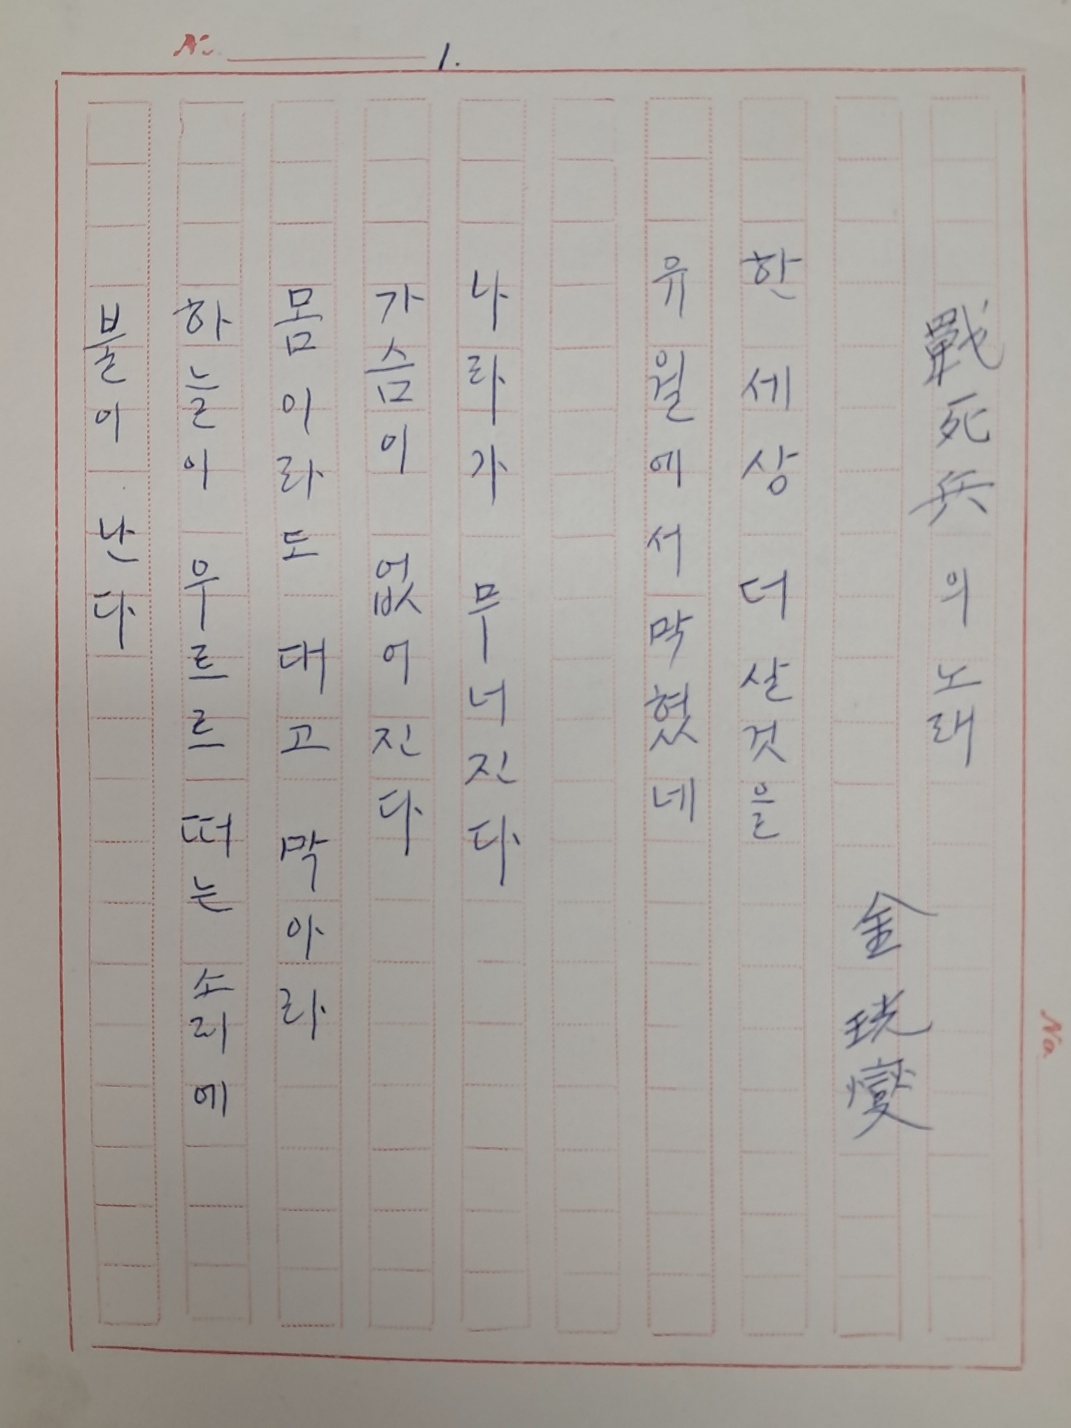 No. 1.
戰死兵의 노래
金珖燮
한 세상 더 살것을
유월에서 막혔네
나라가 무너진다
가슴이 없어진다
몸이라도 대고 막아라
하늘이 우르르 떠는 소리에
불이 난다
No.